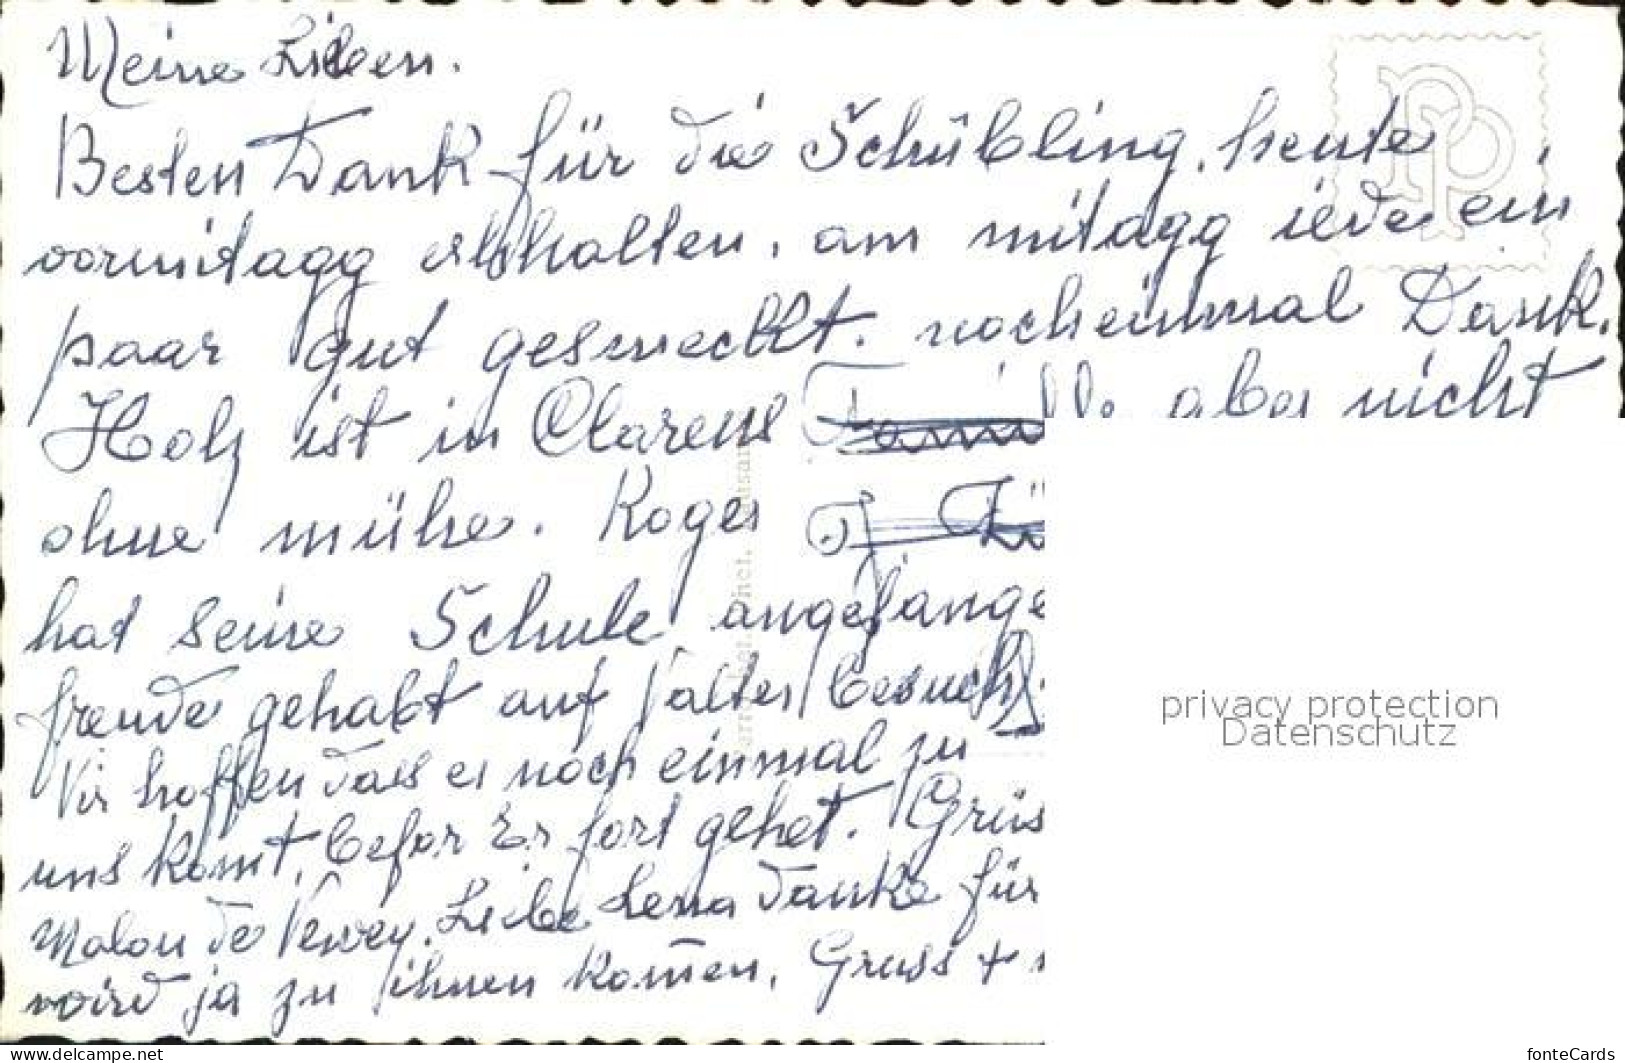 Meine Lieben.
Besten Dank für die Schübling, heute
vormitagg erhalten, am mitagg ieder ein
paar gut gesmeckt. nocheinmal Dank.
Holz ist in Clarens aber nicht
ohne mühe. Roger
hat seine Schule angefange
freude gehabt auf Walter besuch.
Vir hoffen das er noch einmal zu
uns komt, befor Er fort gehet. Grüs
de Vevey. Liebe Lena danke für
ja zu ihnen komen, Gruss +
privacy protection
Datenschutz
www.delcampe.net
fonteCards